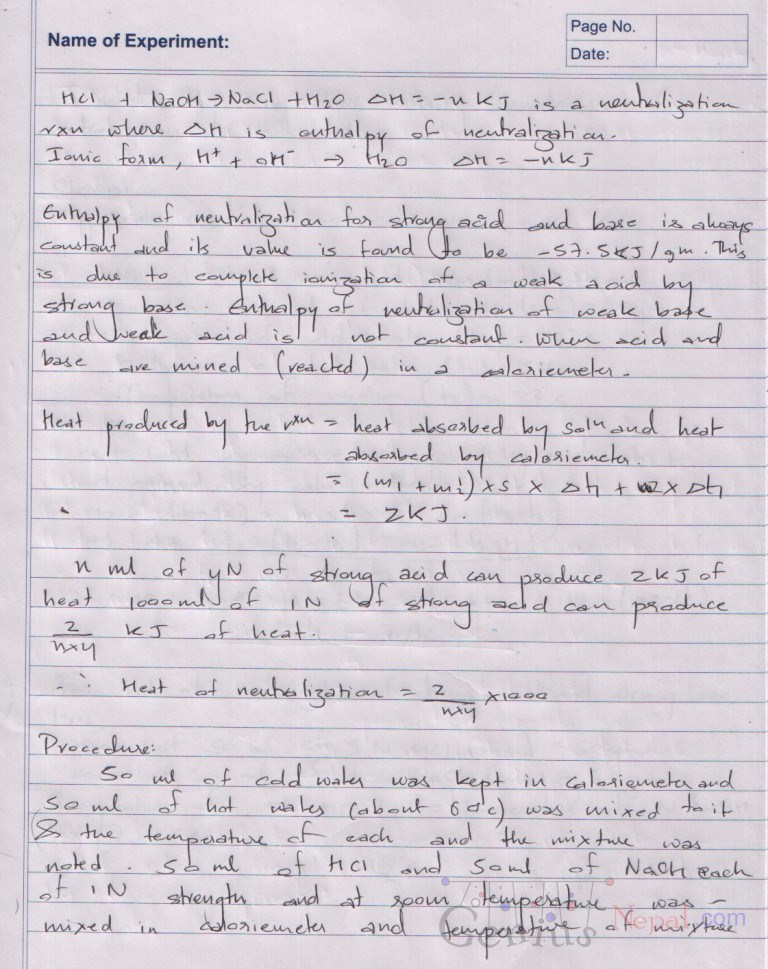 Page No.
Name of Experiment:
Date:
HCl + NaOH → NaCl + H2O ΔH = -n KJ is a neutralization
rxn where ΔH is enthalpy of neutralization.
Ionic form, H+ + OH- → H2O ΔH = -n KJ
Enthalpy of neutralization for strong acid and base is always
constant and its value is found to be -57.5KJ/gm. This
is due to complete ionization of a weak acid by
strong base. Enthalpy of neutralization of weak base
and weak acid is not constant. When acid and
base are mined (reacted) in a caloriemeter.
Heat produced by the rxn = heat absorbed by soln and heat
absorbed by caloriemeter.
= (m1 + m2) x s x Δh + w x Δh
= ZKJ.
n ml of yN of strong acid can produce ZKJ of
heat 1000ml of 1N of strong acid can produce
Z/nxy KJ of heat.
∴ Heat of neutralization = Z/nxy x1000
Procedure:
50 ml of cold water was kept in caloriemeter and
50 ml of hot water (about 60°c) was mixed to it
& the temperature of each and the mixture was
noted. 50 ml of HCl and 50ml of NaOH each
of 1N strength and at room temperature was -
mixed in caloriemeter and temperature of mixture
Genius Nepal.com